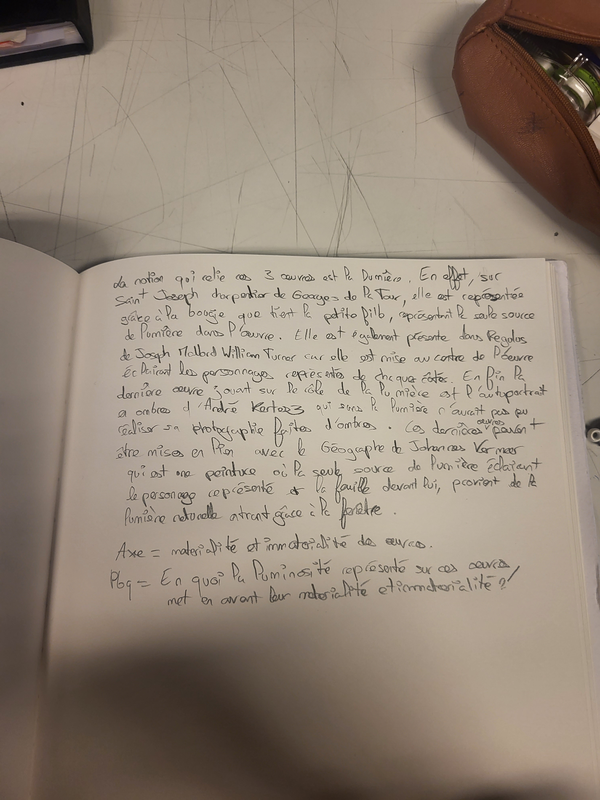 La notion qui relie ces 3 œuvres est la lumière. En effet, sur
Saint Joseph charpentier de Georges de la Tour, elle est représentée
grâce à la bougie que tient la petite fille, représentant la seule source
de lumière dans l'œuvre. Elle est également présente dans Regulus
de Joseph Mallord William Turner car elle est mise au centre de l'œuvre
éclairant les personnages représentés de chaque côtés. Enfin la
dernière œuvre jouant sur le rôle de la lumière est l'autoportrait
à ombres d'André Kertesz qui sans la lumière n'aurait pas pu
réaliser sa photographie faites d'ombres. Ces dernières œuvres peuvent
être mises en lien avec le Géographe de Johannes Vermeer
qui est une peinture où la seule source de lumière éclairant
le personnage représenté et la feuille devant lui, provient de la
lumière naturelle entrant grâce à la fenêtre.
Axe = matérialité et immatérialité des œuvres.
Pbq = En quoi la luminosité représenté sur ces œuvres
met en avant leur matérialité et immatérialité ?